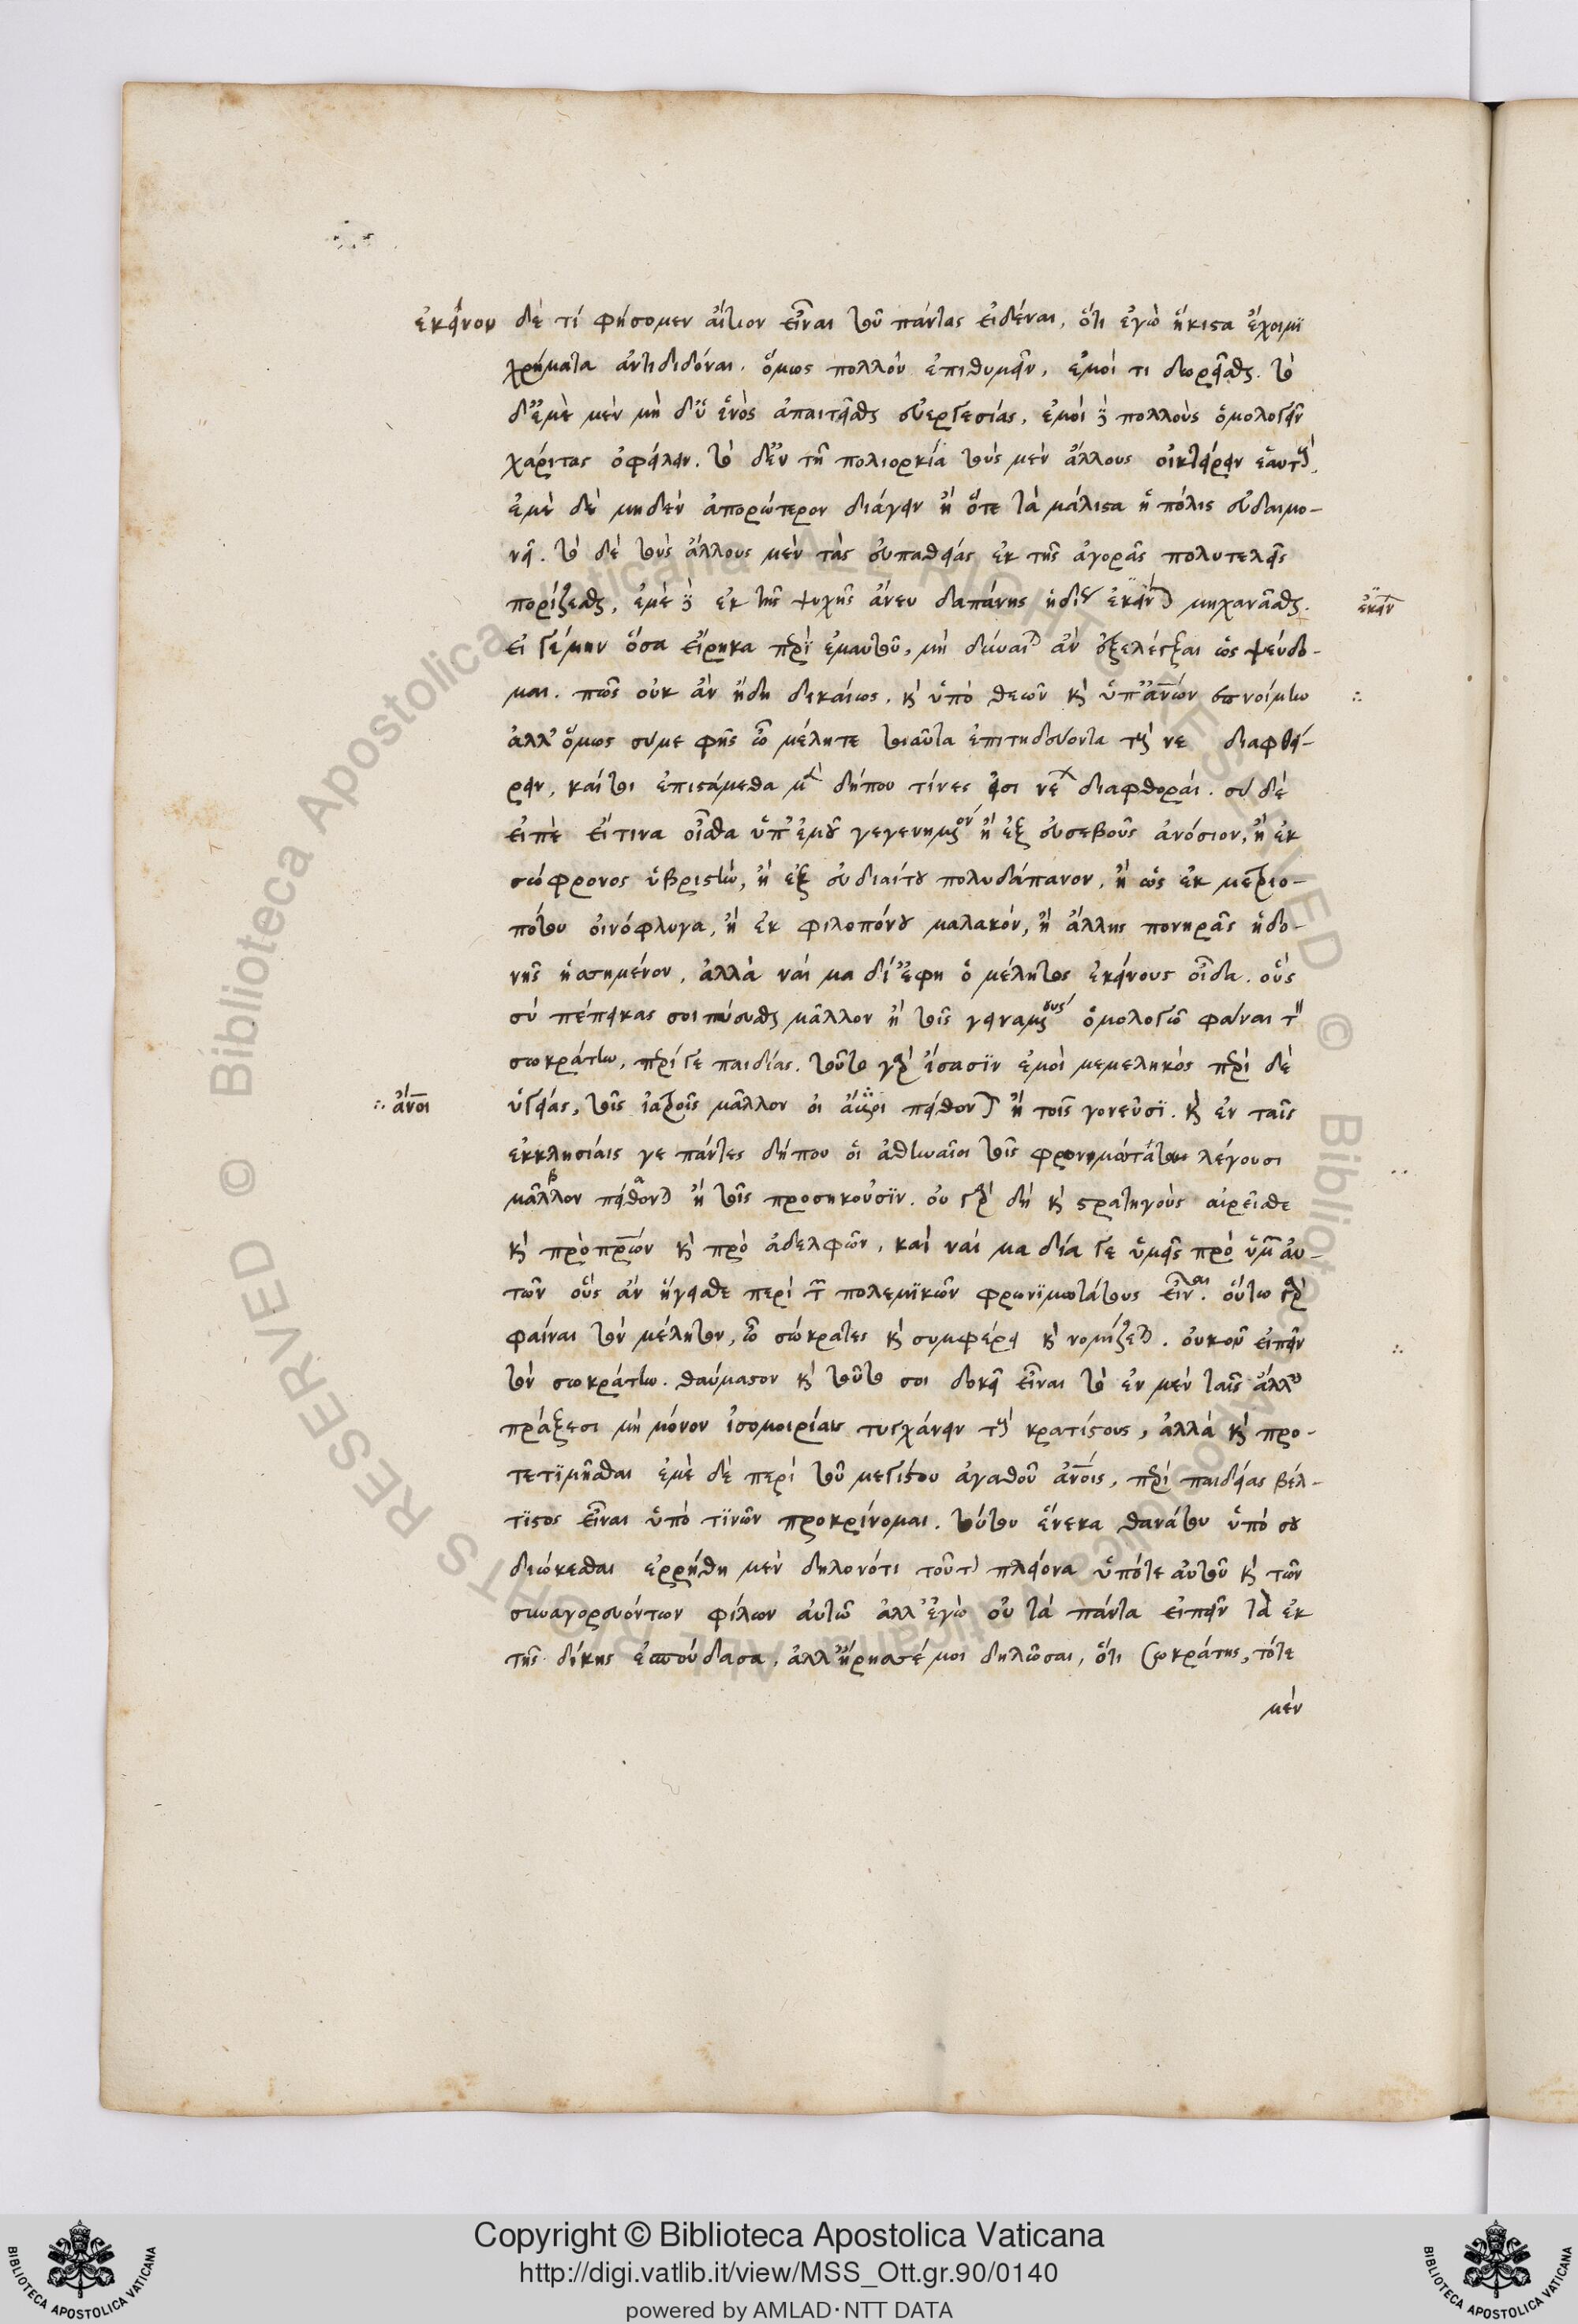 ἐκείνου δὲ τί φήσομεν αἴτιον εἶναι τοῦ πάντας εἰδέναι, ὅτι ἐγὼ ἥκιστα ἔχοιμι
χρήματα ἀντιδιδόναι. ὅμως πολλοὺν ἐπιθυμεῖν, ἐμοί τι δωρεῖσθαι. τὸ
δ' ἐμὲ μὲν μὴ δ' ὑ ἑνὸς ἀπαιτεῖσθαι εὐεργεσίας, ἐμοὶ δὲ πολλοὺς ὁμολογεῖν
χάριτας ὀφείλειν. τὸ δ' ἐν τῇ πολιορκίᾳ τοὺς μὲν ἄλλους οἰκτείρειν ἑαυτούς,
ἐμὲ δὲ μηδὲν ἀπορώτερον διάγειν ἢ ὅτε τὰ μάλιστα ἡ πόλις εὐδαιμο-
νεῖ. τὸ δὲ τοὺς ἄλλους μὲν τὰς εὐπαθείας ἐκ τῆς ἀγορᾶς πολυτελεῖς
πορίζεσθαι, ἐμὲ δὲ ἐκ τῆς ψυχῆς ἄνευ δαπάνης ἡδίους ἐκείνων μηχανᾶσθαι.
εἰ γε μὴν ὅσα εἴρηκα περὶ ἐμαυτοῦ, μὴ δύναιτο ἂν ἐξελέγξαι ὡς ψεύδο-
μαι. πῶς οὐκ ἂν ἤδη δικαίως. καὶ ὑπὸ θεῶν καὶ ὑπ' ἀν̅ων ἐπαινοίμην
ἀλλ' ὅμως σύ με φῂς ὦ μέλητε τοιαῦτα ἐπιτηδεύοντα τοὺς νέ διαφθεί-
ρειν, καίτοι ἐπιστάμεθα μὲν δήπου τίνες εἰσι νέ διαφθοραί. σὺ δὲ
εἰπὲ εἴ τινα οἶσθα ὑπ' ἐμοῦ γεγενημένον ἢ ἐξ εὐσεβοῦς ἀνόσιον, ἢ ἐκ
σώφρονος ὑβριστὴν, ἢ ἐξ εὐδιαίτου πολυδάπανον, ἢ ὡς ἐκ μετριο-
πότου οἰνόφλυγα, ἢ ἐκ φιλοπόνου μαλακόν, ἢ ἄλλης πονηρᾶς ἡδο-
νῆς ἡσσημένον, ἀλλὰ ναί μα δί' ἔφη ὁ μέλητος ἐκείνους οἶδα. οὓς
σὺ πέπεικας σοὶ πείθεσθαι μᾶλλον ἢ τοῖς γειναμένους ὁμολογῶ φάναι τὸν
σωκράτην, περί γε παιδίας. τοῦτο γὰρ ἴσασϊν ἐμοὶ μεμεληκός περὶ δὲ
∴ ἄν̅οι ὑγείας, τοῖς ἰατροῖς μᾶλλον οἱ ἄν̅οι πείθονται ἢ τοῖς γονεῦσϊ. καὶ ἐν ταῖς
ἐκκλησίαις γε πάντες δήπου οἱ ἀθηναῖοι τοῖς φρονιμωτάτοις λέγουσι
μᾶλλον πείθονται ἢ τοῖς προσηκοῦσϊν. οὐ γὰρ δὴ καὶ στρατηγοὺς αἱρεῖσθε
καὶ πρὸ πρ̅ων καὶ πρὸ ἀδελφῶν, καὶ ναί μα δία γε ὑμεῖς πρὸ ὑμῶν αὐ-
τῶν οὓς ἂν ἡγεῖσθε περὶ τῶν πολεμϊκῶν φρονϊμωτάτους εἶναι. οὕτω γὰρ
φάναι τὸν μέλητον, ὦ σώκρατες καὶ συμφέρει καὶ νομίζεται. οὐκοῦν εἰπεῖν
τὸν σωκράτην. θαυμαστὸν καὶ τοῦτό σοι δοκεῖ εἶναι τὸ ἐν μὲν ταῖς ἄλλαις
πράξεσι μὴ μόνον ἰσομοιρίας τυγχάνειν τοὺς κρατίστους, ἀλλὰ καὶ προ-
τετϊμῆσθαι ἐμὲ δὲ περὶ τοῦ μεγίστου ἀγαθοῦ ἀν̅οις, περὶ παιδείας βέλ-
τϊστος εἶναι ὑπό τϊνῶν προκρίνομαι. τούτου ἕνεκα θανάτου ὑπὸ σοῦ
διώκεσθαι ἐρρήθη μὲν δηλονότι τούτων πλείονα ὑπό τε αὐτοῦ καὶ τῶν
συναγορευόντων φίλων αὐτῷ ἀλλ' ἐγὼ οὐ τὰ πάντα εἰπεῖν τὰ ἐκ
τῆς δίκης ἐσπούδασα, ἀλλ' ἤρκεσέ μοι δηλῶσαι, ὅτι Σωκράτης, τότε
μέν
Copyright © Biblioteca Apostolica Vaticana
http://digi.vatlib.it/view/MSS_Ott.gr.90/0140
powered by AMLAD·NTT DATA